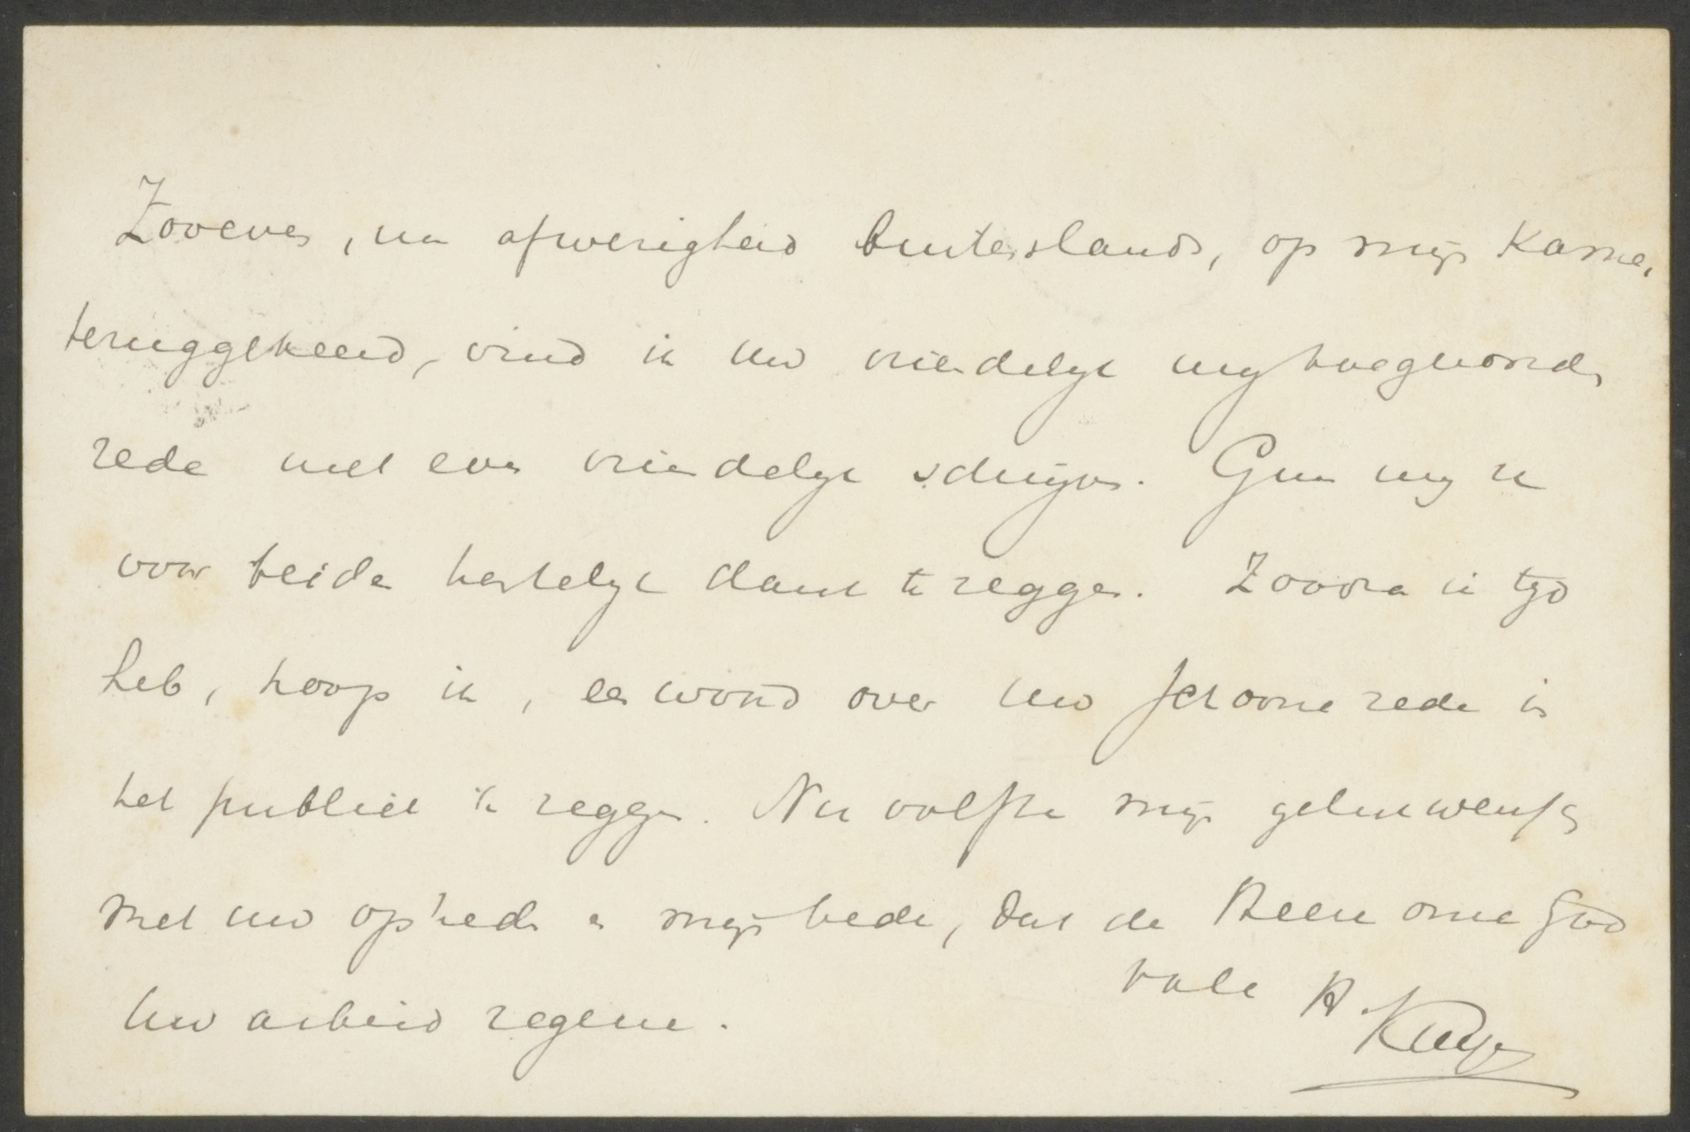 Zooeven, na afwezigheid buitenslands, op mijn Kamer
teruggekeerd, vind ik uw vriendelijk mij toegezonden
rede met een vriendelijk schrijven. Gun mij u
voor beide hartelijk dank te zeggen. Zoodra ik tijd
heb, hoop ik, een woord over uw schoone rede in
het publiek te zeggen. Nu volsta mijn gelukwensch
met uw optreden en mijn bede, dat de Heere onze God
uw arbeid zegene.
Vale A. Kuyper